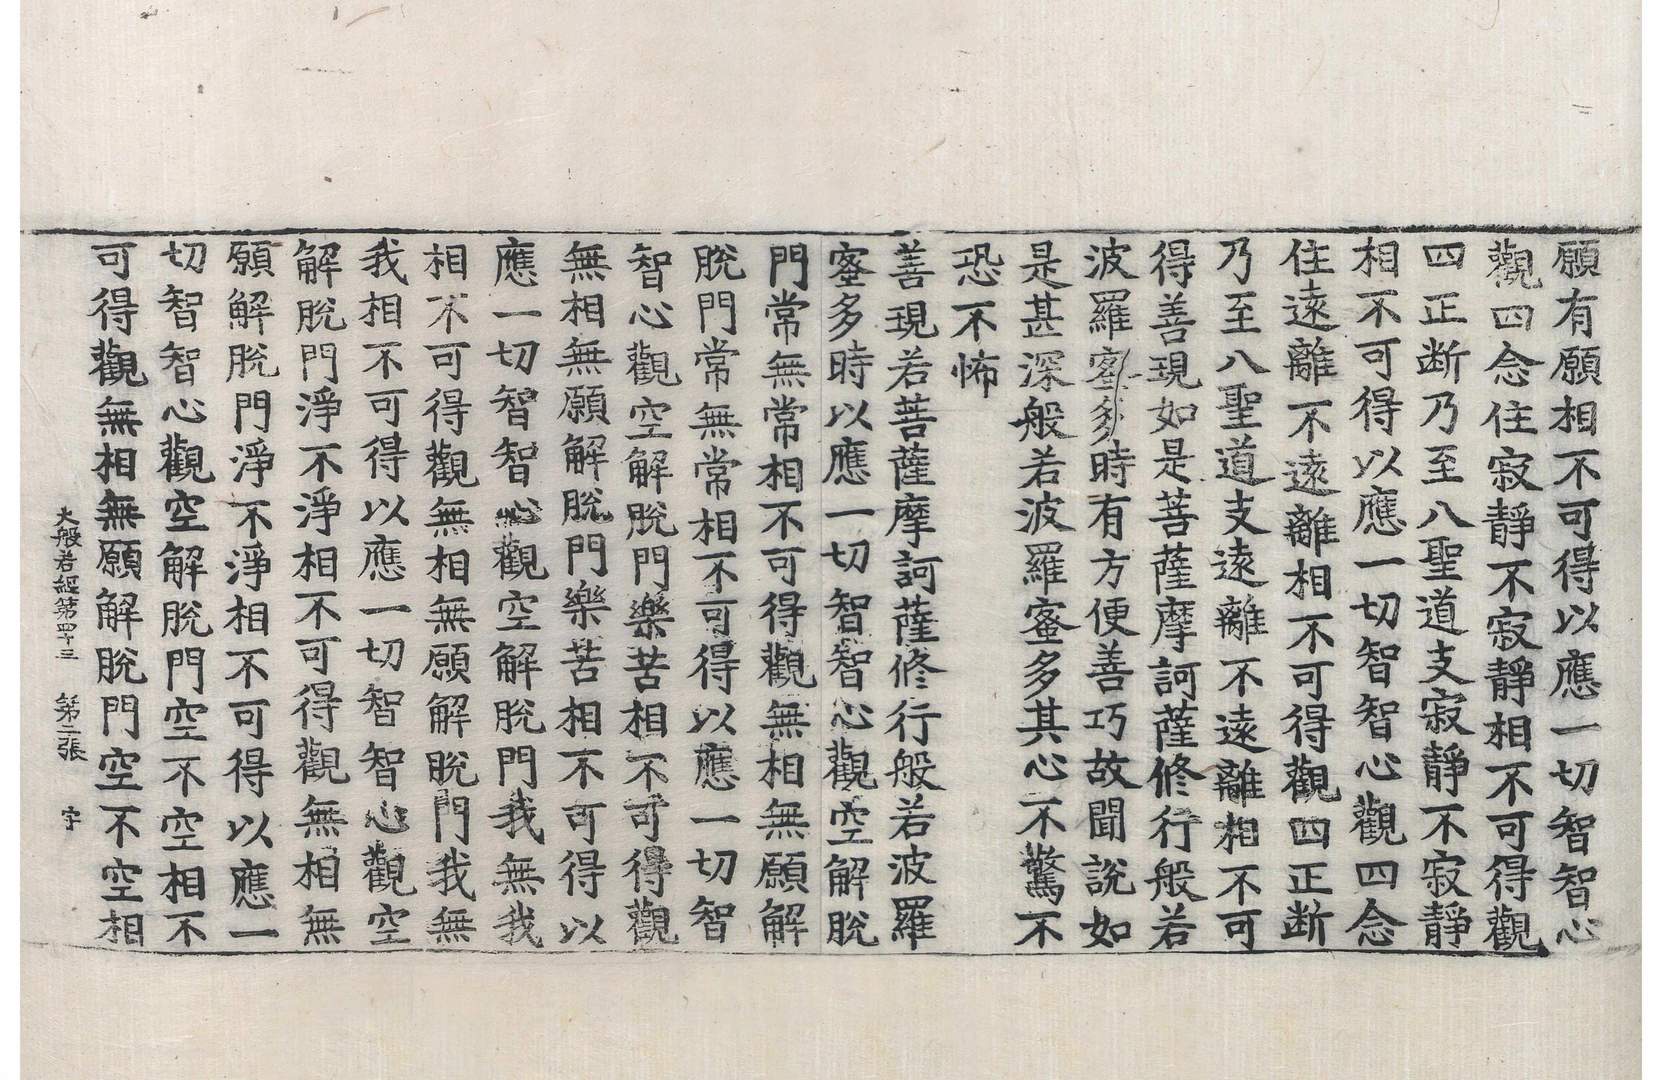 願有願相不可得以應一切智智心
觀四念住寂靜不寂靜相不可得觀
四正断乃至八聖道支寂靜不寂靜
相不可得以應一切智智心觀四念
住遠離不遠離相不可得觀四正断
乃至八聖道支遠離不遠離相不可
得善現如是菩薩摩訶薩修行般若
波羅蜜多時有方便善巧故聞說如
是甚深般若波羅蜜多其心不驚不
恐不怖
善現若菩薩摩訶薩修行般若波羅
蜜多時以應一切智智心觀空解脫
門常無常相不可得觀無相無願解
脫門常無常相不可得以應一切智
智心觀空解脫門樂苦相不可得觀
無相無願解脫門樂苦相不可得以
應一切智智心觀空解脫門我無我
相不可得觀無相無願解脫門我無
我相不可得以應一切智智心觀空
解脫門淨不淨相不可得觀無相無
願解脫門淨不淨相不可得以應一
切智智心觀空解脫門空不空相不
可得觀無相無願解脫門空不空相
大般若經第四十三 第二張 字